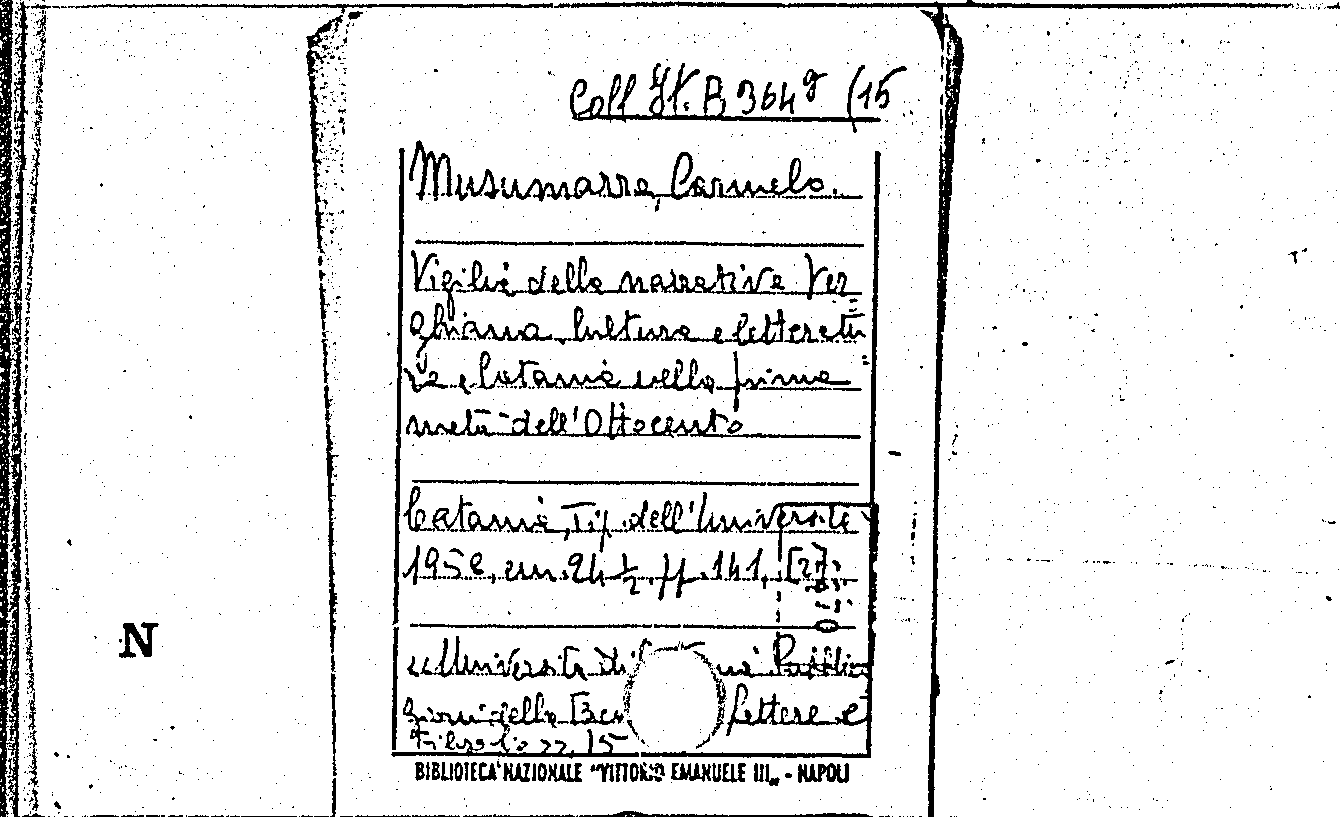 Coll It. B 364 9 (15
Musumarra, Carmelo.
Vigilia della narrativa Ver
ghiana. Cultura e letteratu
ra a Catania nella prima
metà dell'Ottocento
Catania, Tip. dell'Università
195 , cm. 24 1/2, pp. 141, [2].
«Università di nia Pubblica
zioni della Lettere e
Filosofia », 15
N
BIBLIOTECA NAZIONALE "VITTORIO EMANUELE III„ - NAPOLI